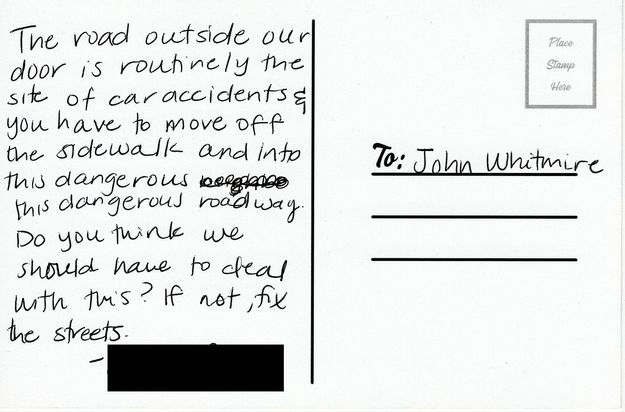 The road outside our
door is routinely the
site of car accidents &
you have to move off
the sidewalk and into
this dangerous
this dangerous roadway.
Do you think we
should have to deal
with this? If not, fix
the streets.
-
Place
Stamp
Here
To: John Whitmire